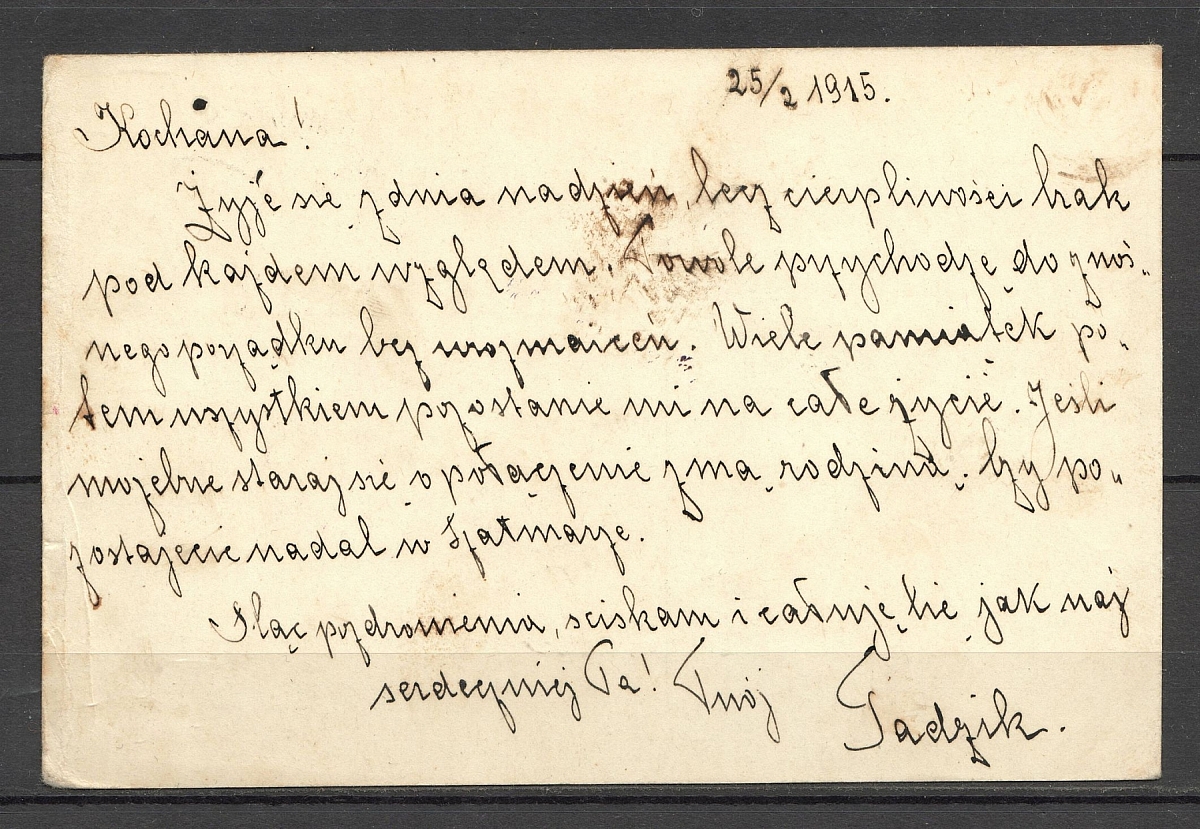 25/2 1915.
Kochana!
Żyjé się z dnia na dzień, lecz cierpliwości brak
pod każdem względem. Powole przychodzę do znoś„
nego porządku bez urozmaiceń. Wiele pamiątek po„
tem wszystkiem pozostanie mi na całe życie. Jeśli
możebne staraj się o połączenie z mą rodziną. Czy po„
zostajecie nadal w Szatmarze.
Śląc pozdrowienia, sciskam i całuję Cię jak naj
serdeczniej Pa! Twój Tadzik.